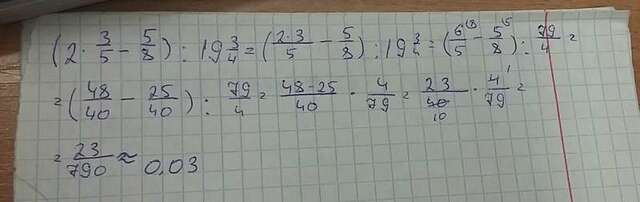 (2 · 3/5 − 5/8) : 19 3/4 = (2·3/5 − 5/8) : 19 3/4 = (6/5 ⁽⁸ − 5/8 ⁽⁵) : 79/4 =
= (48/40 − 25/40) : 79/4 = 48-25/40 · 4/79 = 23/40 10 · 4 1/79 =
= 23/790 ≈ 0.03